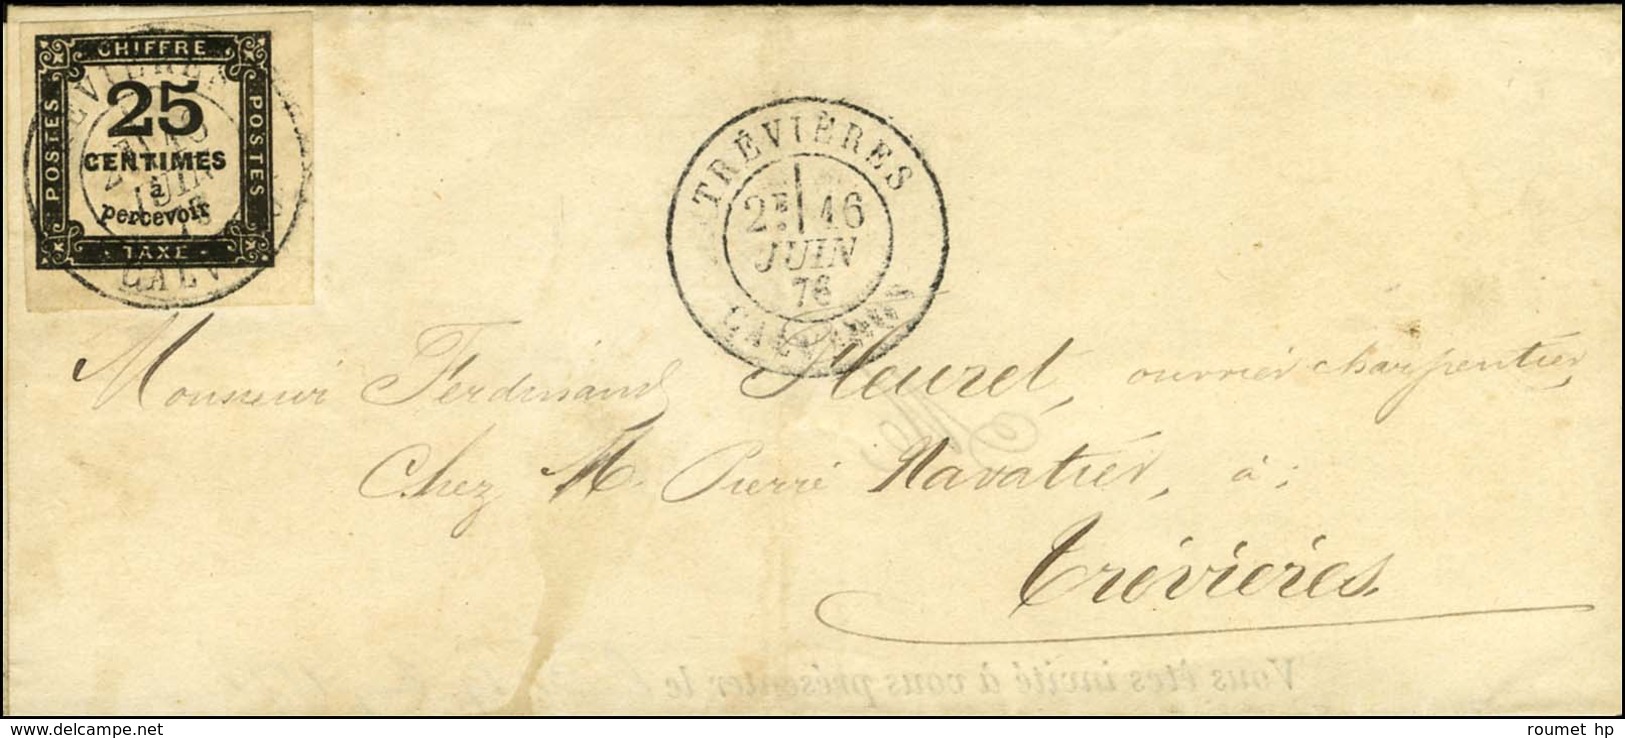 CHIFFRE
POSTES
POSTES
25
CENTIMES
à
percevoir
TAXE
TRÉVIÈRES
2E 16
JUIN
76
CALVADOS
Monsieur Ferdinand Heuzel, ouvrier charpentier
Chez M. Pierre Navatier, à :
Trévières
Vous êtes invité à vous présenter le
roumet hp